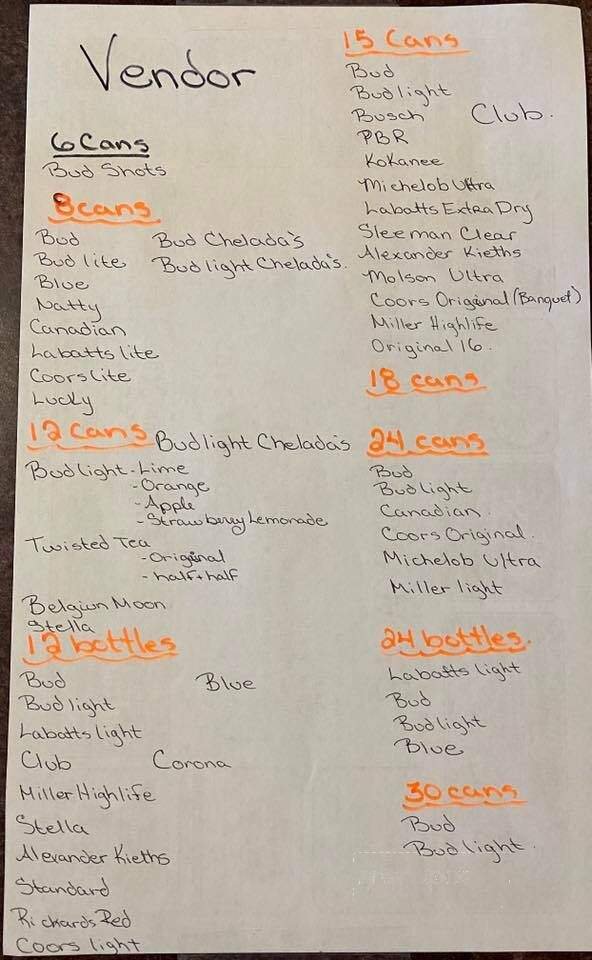 Vendor
6 Cans
Bud Shots
8 cans
Bud
Bud Chelada's
Bud lite
Bud light Chelada's.
Blue
Natty
Canadian
Labatts lite
Coors lite
Lucky
12 Cans
Bud light Chelada's
Bud light - Lime
- Orange
- Apple
- Strawberry Lemonade
Twisted Tea
- Original
- half + half
Belgiun Moon
Stella
12 bottles
Bud
Blue
Bud light
Labatts light
Club
Corona
Miller Highlife
Stella
Alexander Kieths
Standard
Rickards Red
Coors light
15 Cans
Bud
Bud light
Busch
Club.
PBR
Kokanee
Michelob Ultra
Labatts Extra Dry
Sleeman Clear
Alexander Kieths
Molson Ultra
Coors Original (Banquet)
Miller Highlife
Original 16.
18 cans
24 cans
Bud
Bud light
Canadian.
Coors Original.
Michelob Ultra
Miller light
24 bottles.
Labatts light
Bud
Bud light
Blue
30 cans
Bud
Bud light.